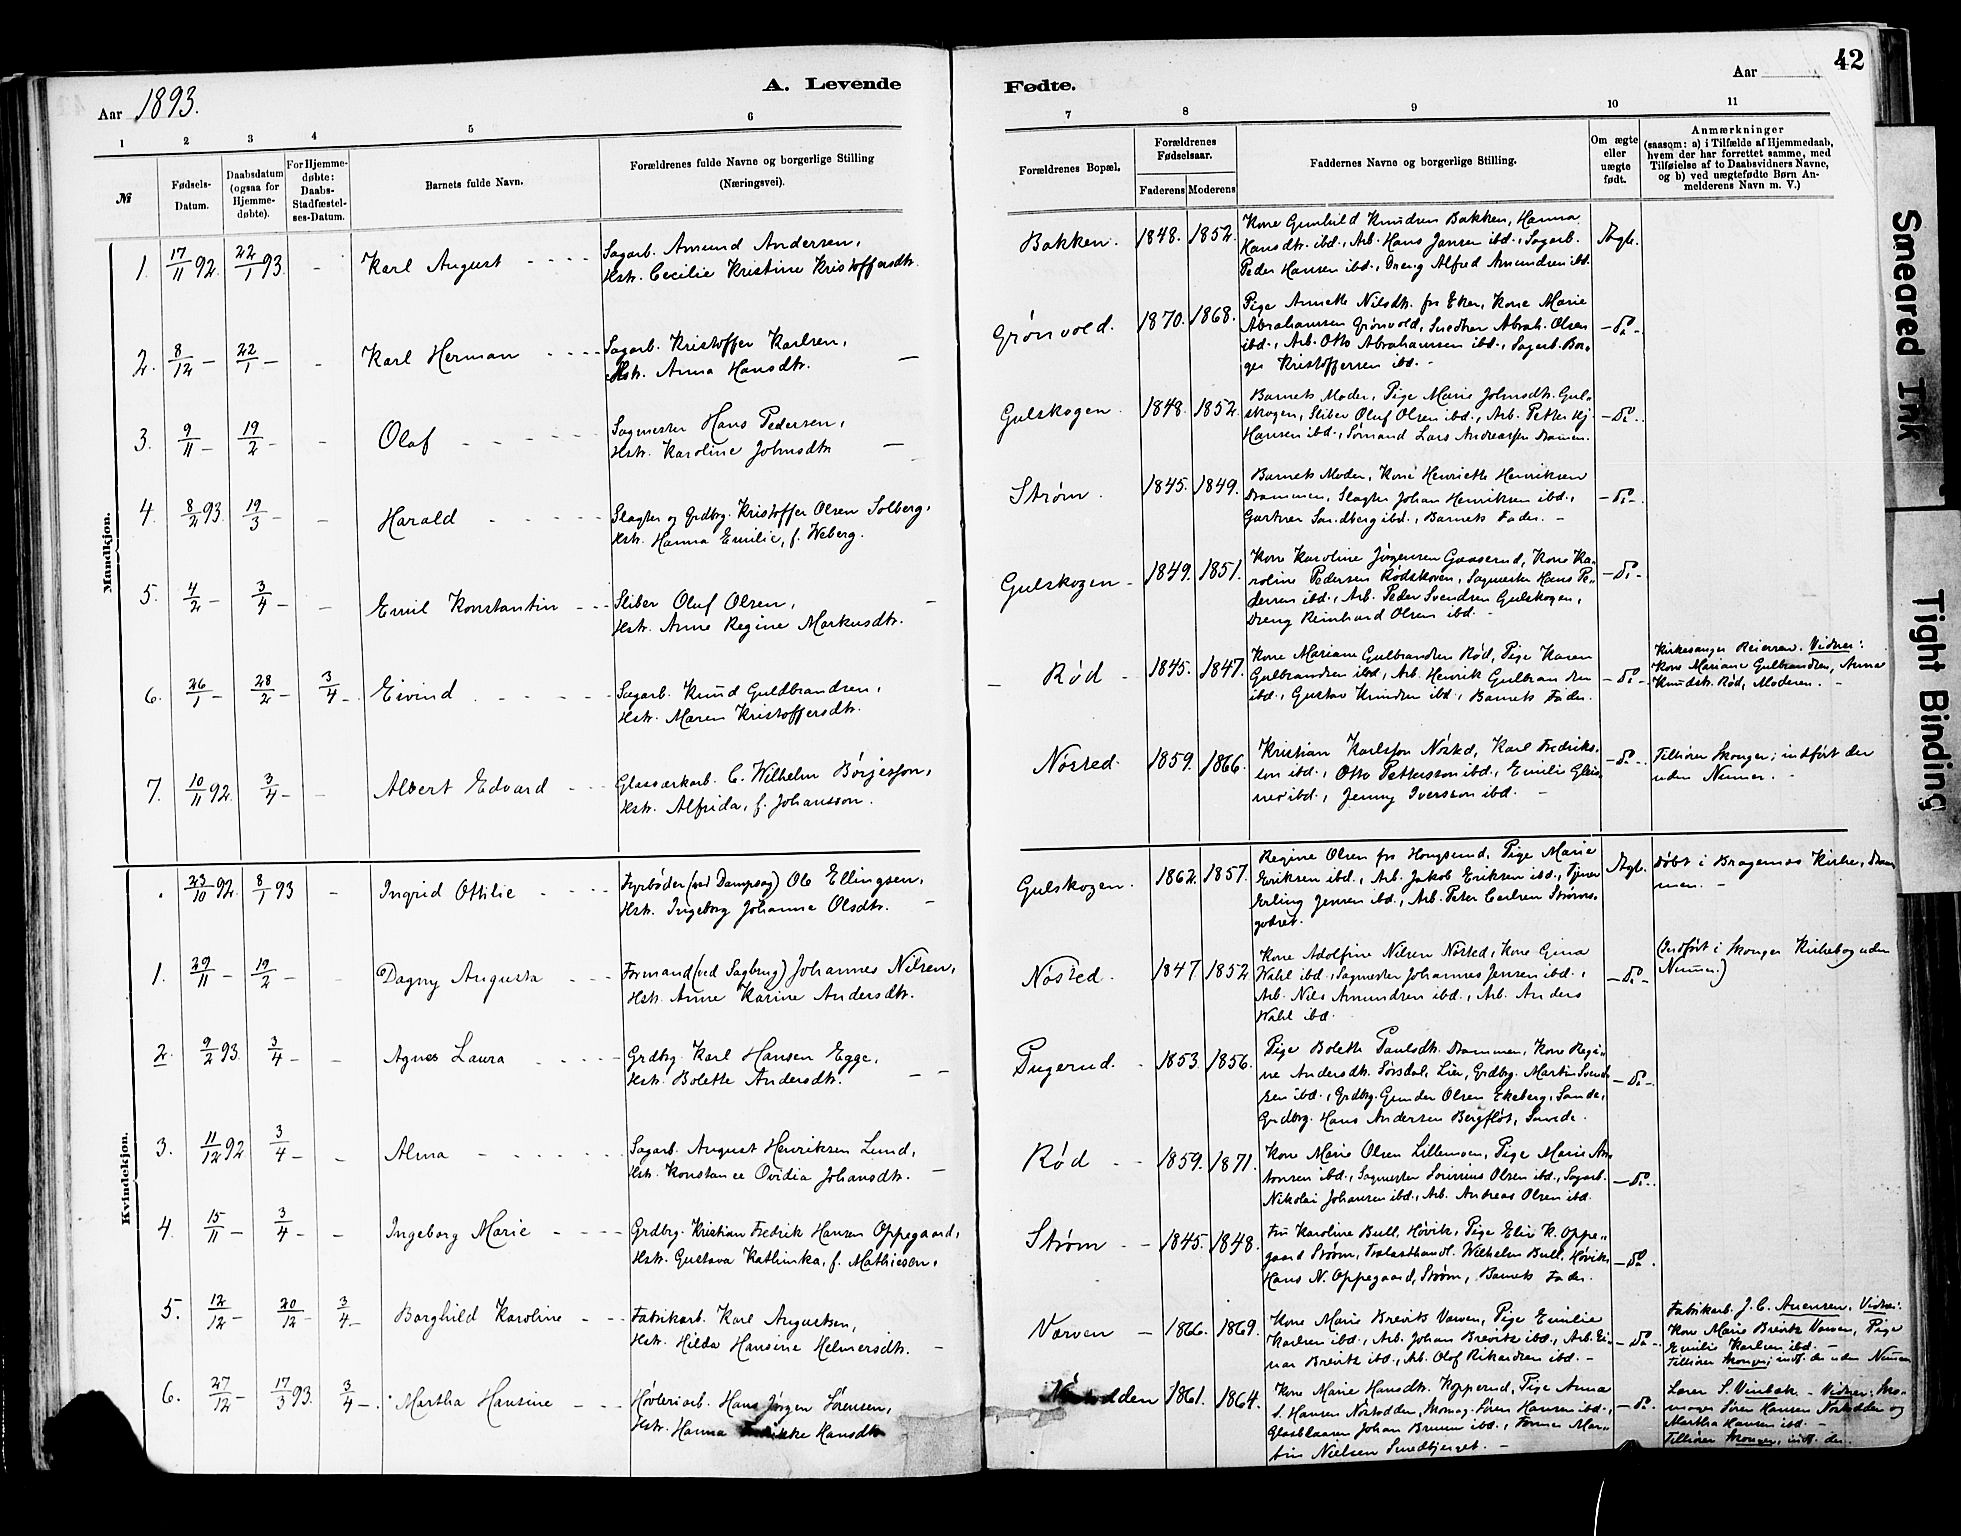 Aar 1893.
A. Levende
Fødte.
Aar
42
1 2 3 4 5 6 7 8 9 10 11
№
Fødsels-
Datum.
Daabsdatum
(ogsaa for
Hjemme-
døbte).
For Hjemme-
døbte:
Daabs-
Stadfæstel-
ses-Datum.
Barnets fulde Navn.
Forældrenes fulde Navne og borgerlige Stilling
(Næringsvei).
Forældrenes Bopæl.
Forældrenes
Fødselsaar.
Faderens Moderens
Faddernes Navne og borgerlige Stilling.
Om ægte
eller
uægte
født.
Anmærkninger
(saasom: a) i Tilfælde af Hjemmedaab,
hvem der har forrettet samme, med
Tilføielse af to Daabsvidners Navne,
og b) ved uægtefødte Børn An-
melderens Navn m. V.)
Mandkjøn.
1. 17/11 92. 22/1 93. - Karl August
Sagarb. Amund Andersen,
Hstr. Cecilie Kristine Kristoffersdtr.
Bakken. 1848. 1852.
Kone Gunhild Knudsen Bakken, Hanna
Hansdtr. ibd., Arb. Hans Jensen ibd., Sagarb.
Peder Hansen ibd., Dreng Alfred Amundsen ibd.
Ægte.
2. 8/12 - 22/1 - - Karl Herman
Sagarb. Kristoffer Karlsen,
Hstr. Anna Hansdtr.
Grønvold. 1870. 1868.
Pige Annette Nilsdtr. fra Eker, Kone Marie
Abrahamsen Grønvold, Snedker Abrah. Olsen
ibd., Arb. Otto Abrahamsen ibd., Sagarb. Bør-
ger Kristoffersen ibd. -
- Do -
3. 9/11 - 19/2 - - Olaf
Sagmester Hans Pedersen,
Hstr. Karoline Johnsdtr
Gulskogen. 1848. 1852.
Barnets Moder, Pige Marie Johnsdtr. Gul-
skogen, Sliber Oluf Olsen ibd., Arb. Petter Hj
Hansen ibd., Sømand Lars Andreassen Drammen.
- Do -
4. 8/2 93. 19/3 - - Harald
Slagter og Grdbrg. Kristoffer Olsen Solberg,
Hstr. Hanna Emilie, f. Weberg.
Strøm. 1845. 1849.
Barnets Moder, Kone Henriette Henriksen
Drammen, Slagter Johan Henriksen ibd.,
Gartner Sandberg ibd., Barnets Fader. -
- Do -
5. 4/2 - 3/4 - - Emil Konstantin
Sliber Oluf Olsen,
Hstr. Anne Regine Markusdtr.
Gulskogen - 1849. 1851.
Kone Karoline Jørgensen Gaaserud, Kone Ka-
roline Pedersen Rødskoven, Sagmester Hans Pe-
dersen ibd., Arb. Peder Svendsen Gulskogen,
Dreng Reinhard Olsen ibd. -
- Do -
6. 26/1 - 28/2 - 3/4 - Eivind
Sagarb. Knud Guldbrandsen,
Hstr. Maren Kristoffersdtr.
Rød - 1845. 1847.
Kone Mariane Gulbrandsen Rød, Pige Karen
Gulbrandsen ibd., Arb. Henrik Gulbrandsen
ibd., Gustav Knudsen ibd., Barnets Fader.
- Do -
Kirkesanger Reiersen. Vidner:
Kone Mariane Gulbrandsen, Anna
Knudsdtr. Rød, Moderen. -
7. 10/11 92. 3/4 - - Albert Edvard
Glasværkarb. C. Wilhelm Börjesson,
Hstr. Alfrida, f. Johansson.
Nøsted. 1859. 1866.
Kristian Karlsson Nøsted, Karl Fredriks-
son ibd., Otto Pettersson ibd., Emilie
ibd., Jenny Iversson ibd. -
- Do -
Tilhører Skoger; indført der
uden Numer. -
Kvindekjøn.
23/10 92. 8/1 93 - Ingrid Ottilie
Fyrbøder (ved Dampsag) Ole Ellingsen,
Hstr. Ingeborg Johanne Olsdtr.
Gulskogen. 1862. 1857.
Regine Olsen fra Hougsund, Pige Marie
Eriksen ibd., Arb. Jakob Eriksen ibd., Tjener
Erling Jensen ibd., Arb. Peter Carlsen Strøms-
godset.
Ægte.
Døbt i Bragernes Kirke, Dram-
men. -
1. 29/11 - 19/2 - - Dagny Augusta
Formand (ved Sagbrug) Johannes Nilsen,
Hstr. Anne Karine Andersdtr.
Nøsted. 1847 1852
Kone Adolfine Nilsen Nøsted, Kone Gina
Wahl ibd., Sagmester Johannes Jensen ibd.,
Arb. Nils Amundsen ibd., Arb. Anders
Wahl ibd.
- Do -
(Indført i Skoger Kirkebog uden
Numer.)
2. 9/2 93. 3/4 - - Agnes Laura
Grdbrg. Karl Hansen Egge,
Hstr. Bolette Andersdtr.
1853. 1856.
Pige Bolette Paulsdtr. Drammen, Kone Regi-
ne Andersdtr. Sørsdal, Lier, Grdbrg. Martin Svend-
sen ibd., Grdbrg. Gunder Olsen Ekeberg, Sande,
Grdbrg. Hans Andersen Bergflót, Sande.
- Do -
3. 11/12 92 3/4 - - Alma
Sagarb. August Henriksen Lund,
Hstr. Konstance Ovidia Johansdtr.
Rød - 1859. 1871.
Kone Marie Olsen Lillemoen, Pige Marie An-
tonsen ibd., Sagmester Olsen ibd., Sagarb.
Nikolai Johansen ibd., Arb. Andreas Olsen ibd.
- Do -
4. 15/11 - 3/4 - - Ingeborg Marie
Grdbrg. Kristian Fredrik Hansen Oppegaard,
Hstr. Gustava Kathinka, f. Mathiesen,
Strøm - 1845. 1848.
Fru Karoline Bull, Høvik, Pige Elise K. Oppe-
gaard Strøm, Trælasthandl. Wilhelm Bull, Høvik,
Hans N. Oppegaard, Strøm, Barnets Fader.
- Do -
5. 12/12 - 20/12 - 3/4 - Borghild Karoline
Fabrikarb. Karl Augustsen,
Hstr. Hilda Hansine Helmersdtr.
Varven - 1866. 1869.
Kone Marie Brevik Varven, Pige Emilie
Karlsen ibd., Arb. Johan Brevik ibd., Arb. Ei-
nar Brevik ibd., Arb. Olof Rikardsen ibd. -
- Do -
Fabrikarb. J. C. Anensen. Vidner:
Kone Marie Brevik Varven, Pige
Emilie Karlsen ibd. -
Tilhører Skoger; indf. der uden Numer.
6. 27/12 - 17/3 93. 3/4 - Martha Hansine
Høvleriarb. Hans Jørgen Sørensen,
Hstr. Hanna Hansdtr
Nøstodden 1861. 1864.
Kone Marie Hansdtr. Kopperud, Pige Anna
S. Hansen Nøstodden, Skomag. Søren Hansen ibd.,
Glasblaaser Johan Bruun ibd., Former Mar-
tin Nielsen Smedbjerget. -
- Do -
Lærer S. Vinbæk - Vidner: Sko-
mager Søren Hansen Nøstodden og
Martha Hansen ibd. -
Tilhører Skoger, indf. der.
Smeared Ink
Tight Binding